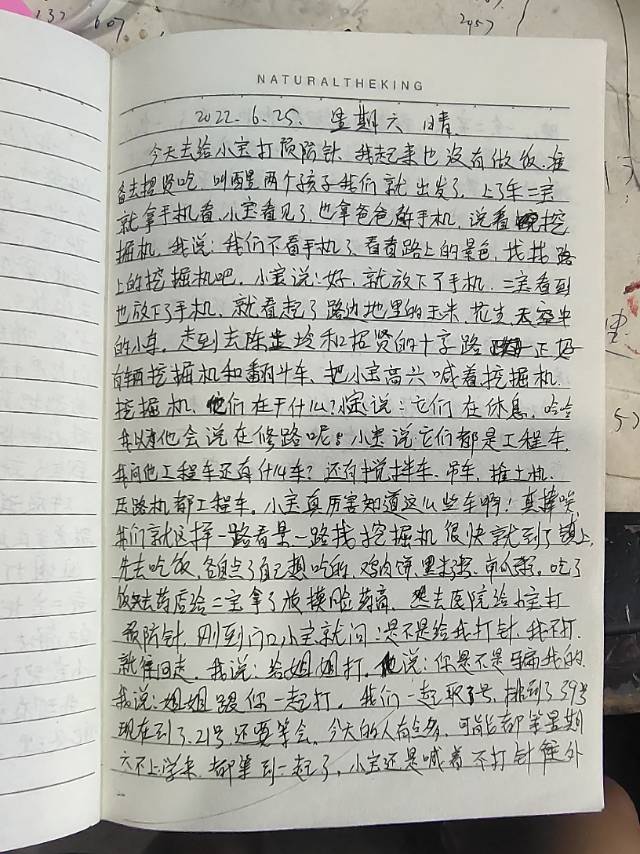 NATURALTHEKING
2022.6.25. 星期六 晴
今天去给小宝打预防针,我起来也没有做饭,准
备去招贤吃,叫醒两个孩子我们就出发了,上了车二宝
就拿手机看,小宝看见了,也拿爸爸的手机,说看挖
掘机,我说:我们不看手机了,看看路上的景色,找找路
上的挖掘机吧,小宝说:好,就放下了手机,二宝看到
也放下了手机,就看起了路边地里的玉米,花生,
的小车,走到去陈 和招贤的十字路 正好
有辆挖掘机和翻斗车,把小宝高兴喊着挖掘机,
挖掘机,他们在干什么?小宝说:它们在休息,哈哈
我以为他会说在修路呢。小宝说它们都是工程车,
我问他工程车还有什么车?还有 拌车、吊车、推土机、
压路机都工程车。小宝真厉害知道这么些车啊!真棒哦,
我们就这样一路看景一路找挖掘机很快就到了镇上,
先去吃饭,各自点了自己想吃的,鸡肉饼,黑米粥,南瓜粥,吃了
饭 去药店给二宝拿了 药膏,然去医院给小宝打
预防针,刚到门口小宝就问:是不是给我打针,我不打,
就往回走,我说:给姐姐打,他说:你是不是骗我的,
我说:姐姐跟你一起打,我们一起取了号,排到了39号
现在到了21号还要等会,今天的人有点多,可能都等星期
六不上学来,都等到一起了,小宝还是喊着不打针往外